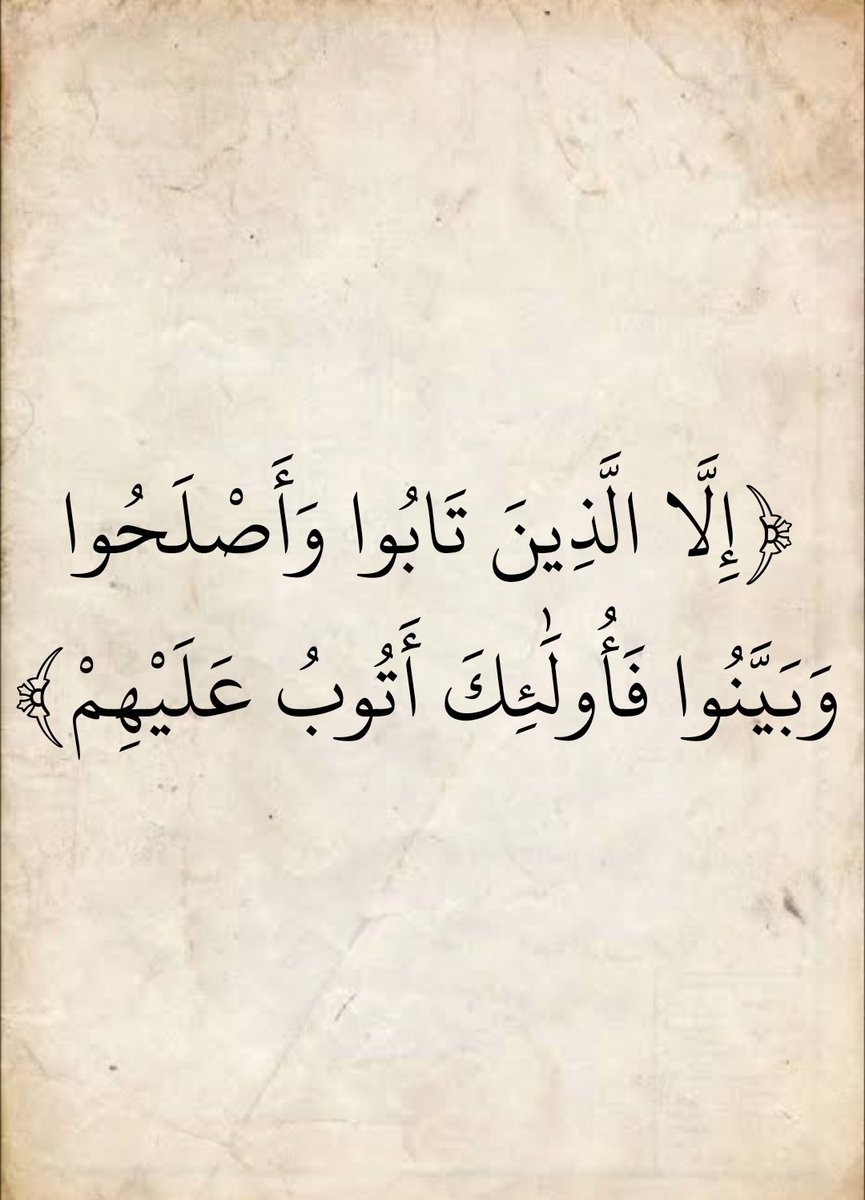 ﴿إِلَّا الَّذِينَ تَابُوا وَأَصْلَحُوا
وَبَيَّنُوا فَأُولَٰئِكَ أَتُوبُ عَلَيْهِمْ﴾